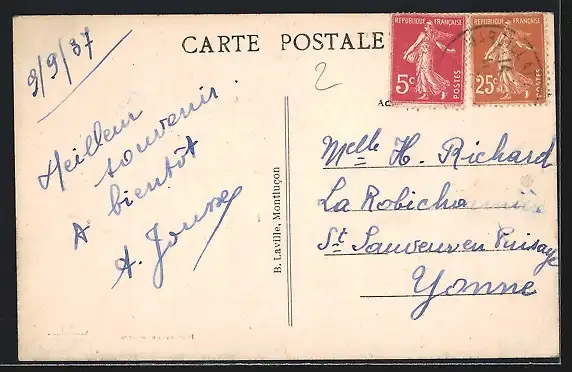 CARTE POSTALE
9/9/37
REPUBLIQUE FRANÇAISE
5c
POSTES
REPUBLIQUE FRANÇAISE
25c
POSTES
2
Meilleur
souvenir.
A bientôt
A. Jousse
B. Laville, Montluçon
Melle H. Richard
La Robicha
St Sauveur en Puisaye
Yonne